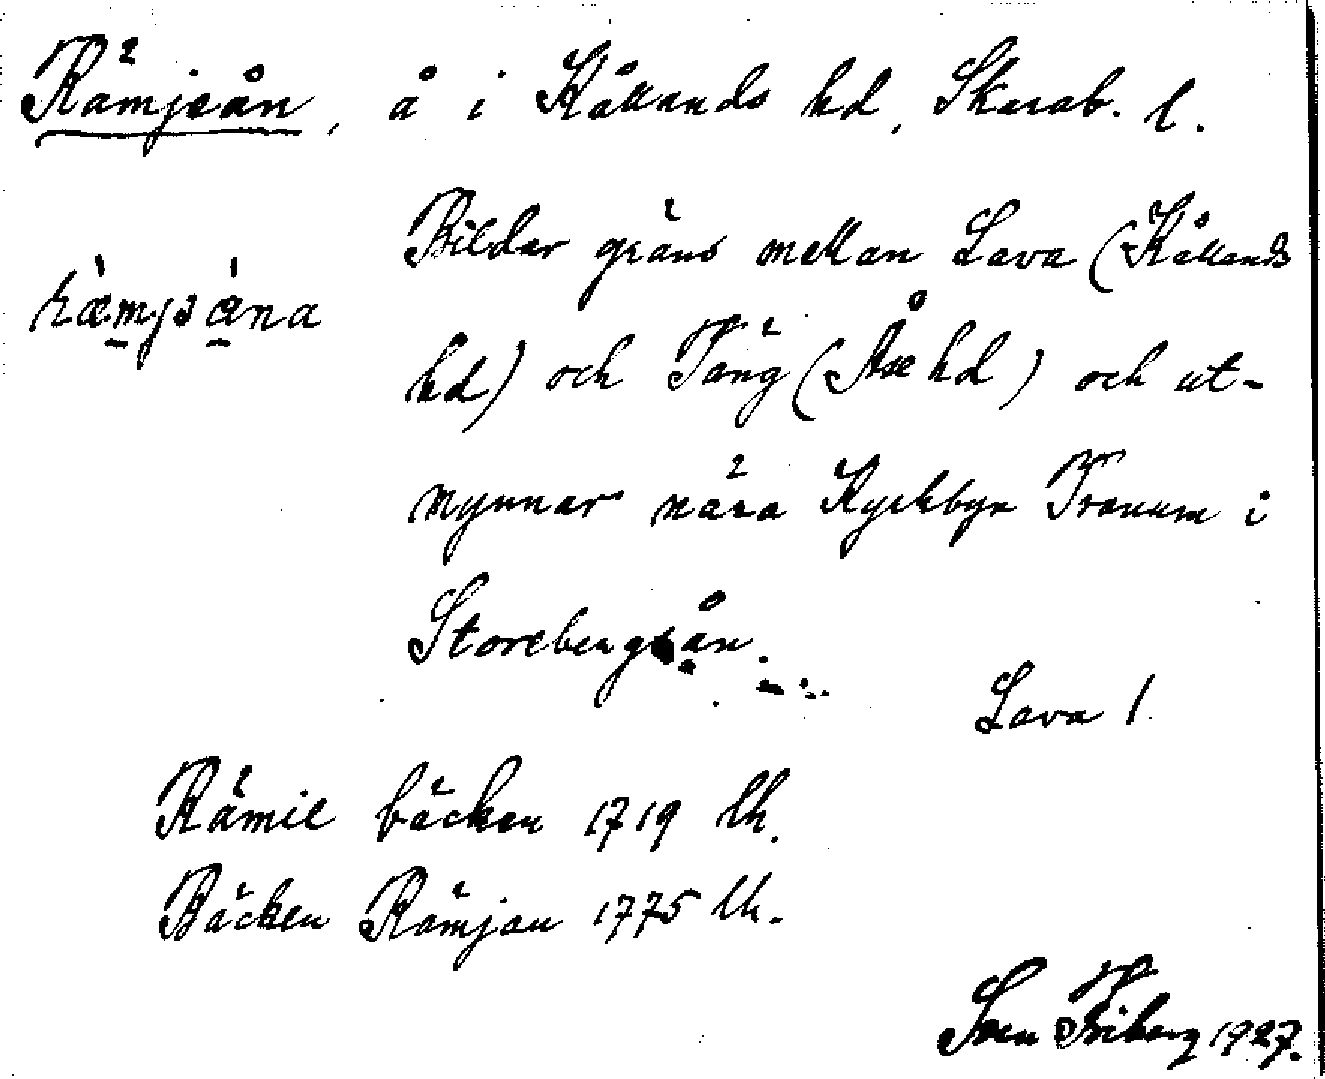 Rämjeån, å i Kållands hd, Skarab. l.
Bildar gräns mellan Lava (Kållands
ræmjɜæna
hd) och Täng (Åse hd) och ut-
mynnar nära Kyrkbyn Tranum i
Storebergsån.
Lava 1.
Rämie bäcken 1719 lh.
Bäcken Rämjan 1775 lh.
Sven Friberg 1927.